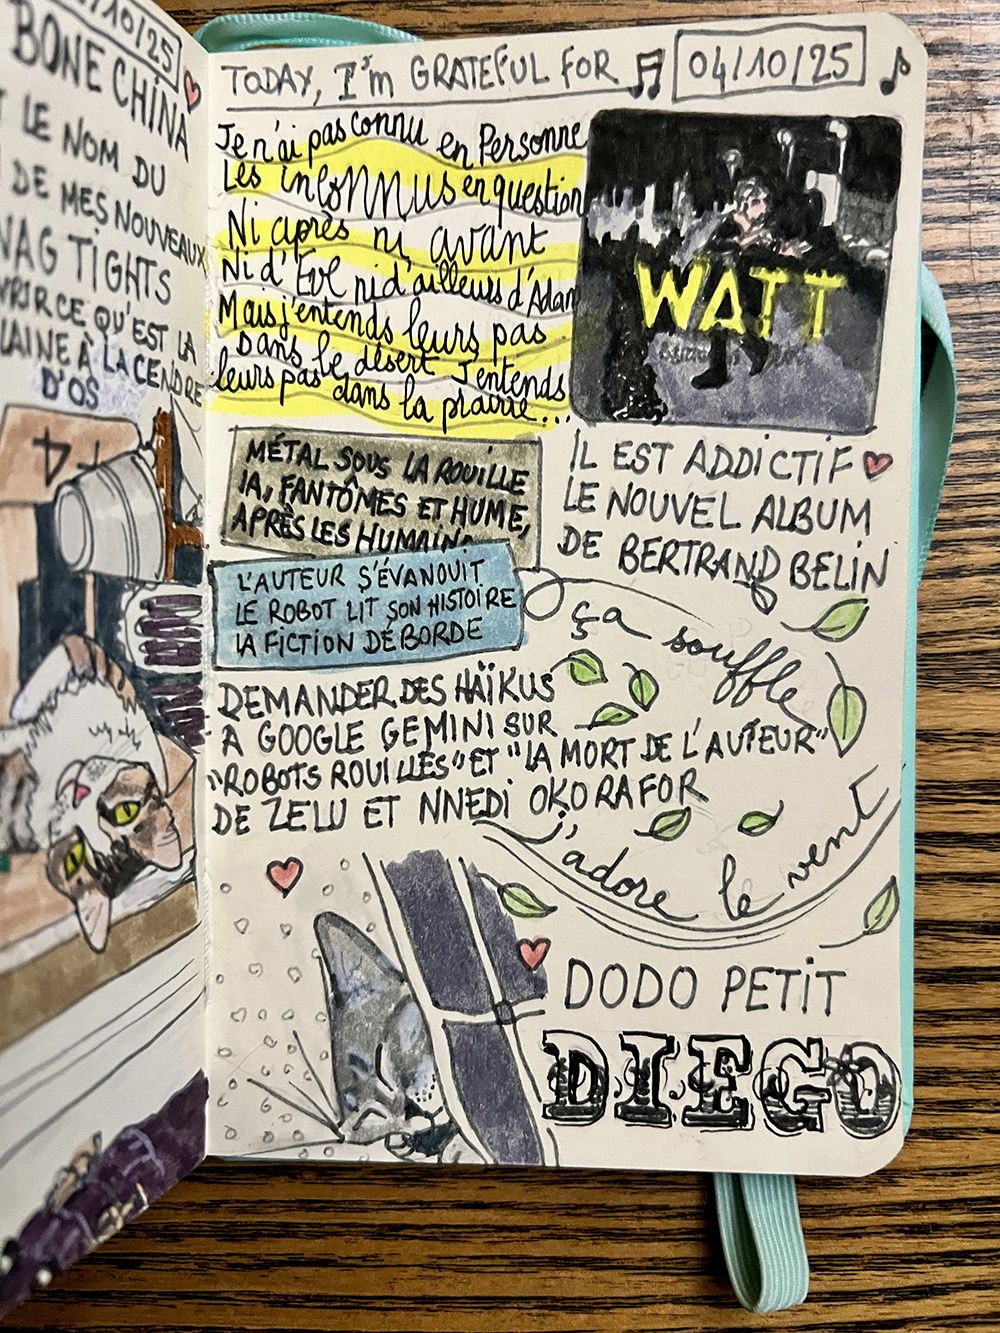 /10/25
BONE CHINA
LE NOM DU
DE MES NOUVEAUX
TIGHTS
CE QU'EST LA
À LA CENDRE
D'OS
4
TODAY, I'm GRATEFUL FOR
04/10/25
Je n'ai pas connu en Personne
Les inconnus en question
Ni après ni avant
Ni d'Eve ni d'ailleurs d'Adam
Mais j'entends leurs pas
Dans le désert J'entends
leurs pas dans la prairie...
WATT
IL EST ADDICTIF
LE NOUVEL ALBUM
DE BERTRAND BELIN
MÉTAL SOUS LA ROUILLE
IA, FANTÔMES ET HUME,
APRÈS LES HUMAINS
L'AUTEUR S'ÉVANOUIT
LE ROBOT LIT SON HISTOIRE
LA FICTION DÉBORDE
ça souffle
DEMANDER DES HAÏKUS
A GOOGLE GEMINI SUR
"ROBOTS ROUILLÉS" ET "LA MORT DE L'AUTEUR"
DE ZELU ET NNEDI OKORAFOR
j'adore le vent
DODO PETIT
DIEGO